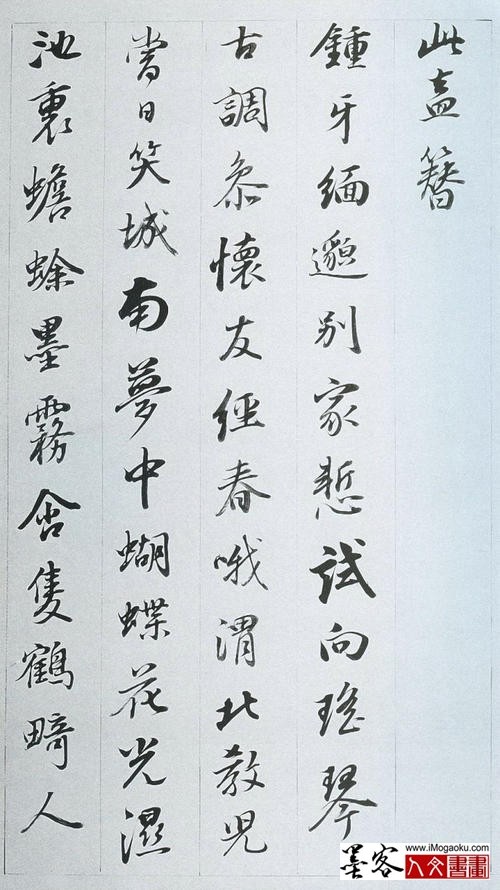 此盍簪
鍾牙緬邈別家慙試向瑤琴
古調叅懷友經春哦渭北教兒
當日笑城南夢中蝴蝶花光濕
池裏蟾蜍墨霧含隻鶴畸人
www.iMogaoku.com
墨客人文書畫